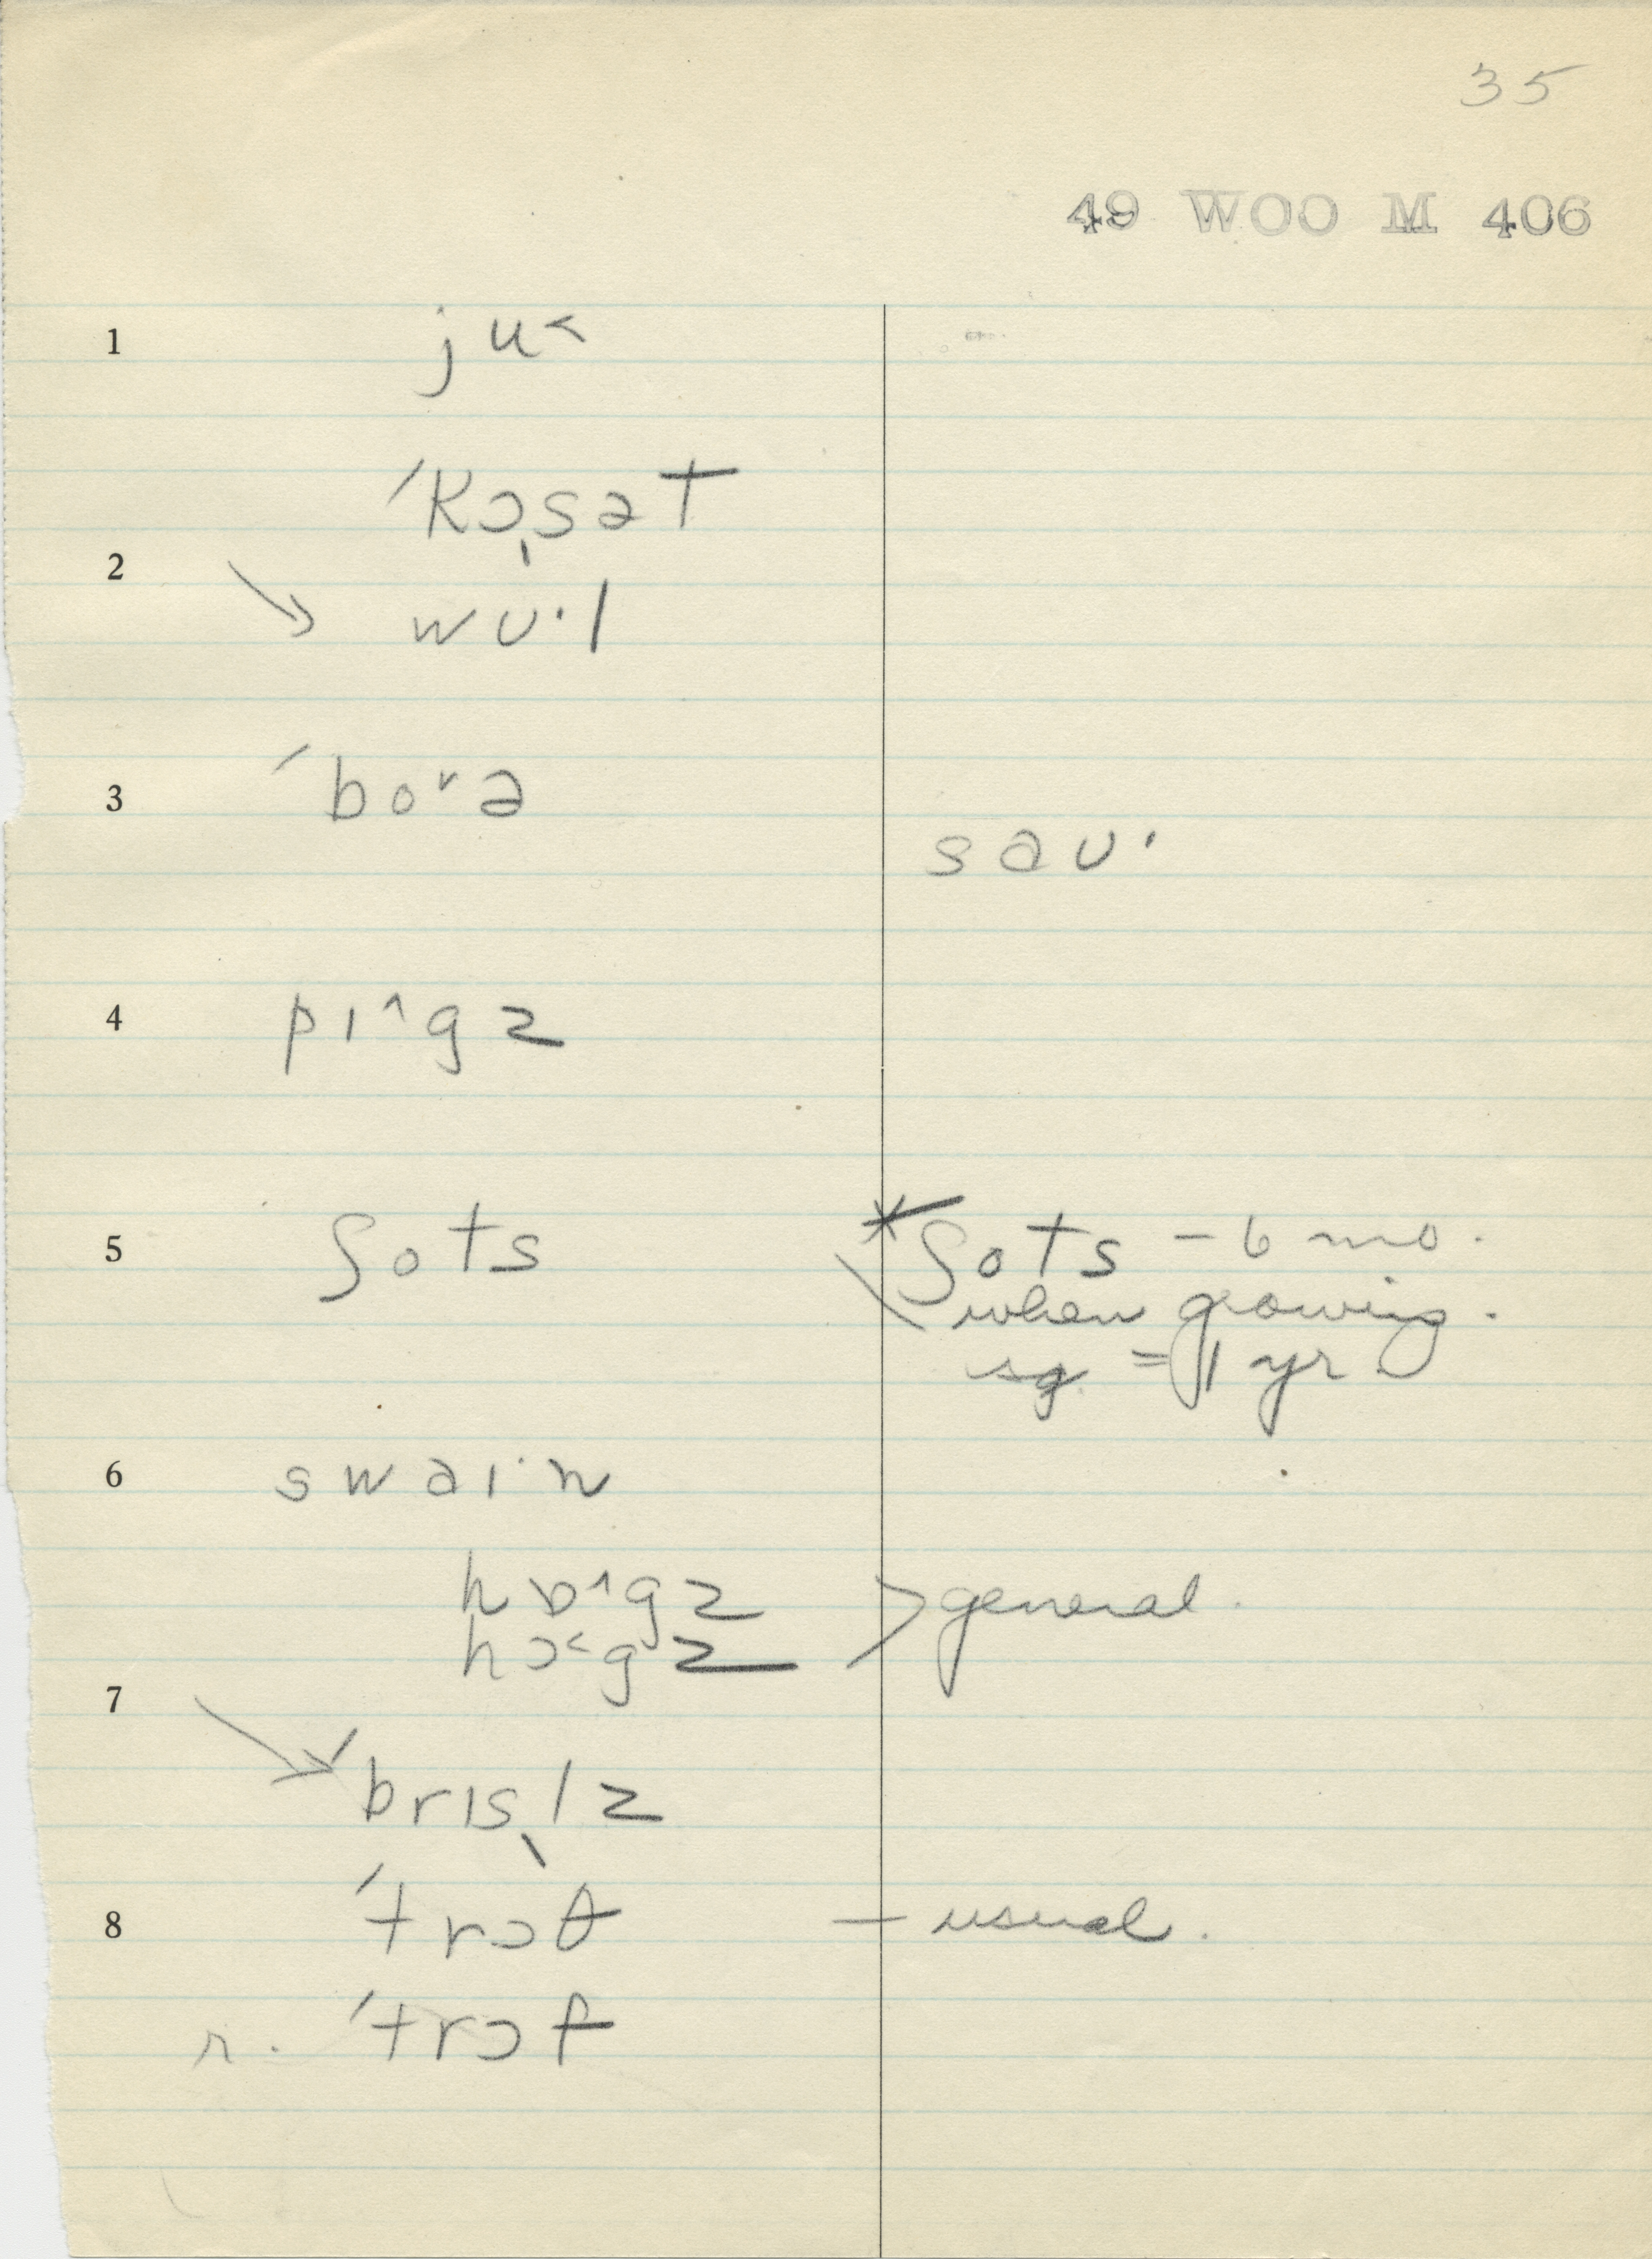 35
49 WOO M 406
1 ju˂
ˈkɔ̩sət
2 → wʊ·l
3 ˈbo˅ə
saʊ·
4 pɪ˄gz
5 ʃots
*ʃots – 6 mo.
when growing.
sg. = 1 yr.
6 swaɪ·n
hɒ˄gz
hɔ˂gz > general.
7 → ˈbrɪsl̩z
8 ˈtrɔθ – usual.
r. ˈtrɔf